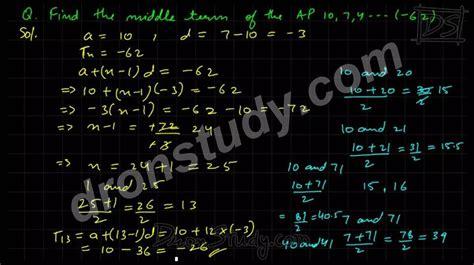 Q. Find the middle term of the AP 10, 7, 4 --- (-62)
Sol. a = 10 , d = 7-10 = -3
Tn = -62
a+(n-1)d = -62
⇒ 10+(n-1)(-3) = -62
⇒ -3(n-1) = -62-10 = -72
⇒ n-1 = +72/+3 24
⇒ n = 24+1 = 25
1 and 25
25+1/2 = 26/2 = 13
T13 = a+(13-1)d = 10+12×(-3)
= 10-36 = -26
10 and 20
10+20/2 = 30/2 15
10 and 21
10+21/2 = 31/2 = 15.5
15, 16
10 and 71
10+71/2
= 81/2 = 40.5
40 and 41
7 and 71
7+71/2 = 78/2 = 39
dronstudy.com
DronStudy.com
DS